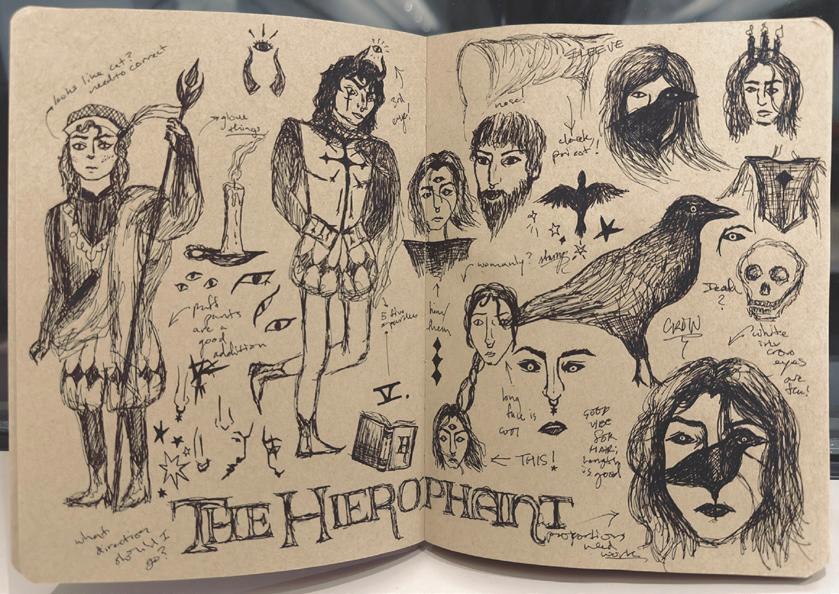 looks like cat?
need to correct
glove
things
3rd
eye!
puff
pants
are a
good
addition
V.
what
direction
should I
go?
THE HIEROPHANT
SLEEVE
nose!
cloak,
priest!
womanly?
stamps
him/
them
long
face is
cool
THIS!
GOOD
VIBE
FOR
HAIR;
is good
Death
?
CROW
white
ink
crow
eyes
are
fun!
proportions
need
work